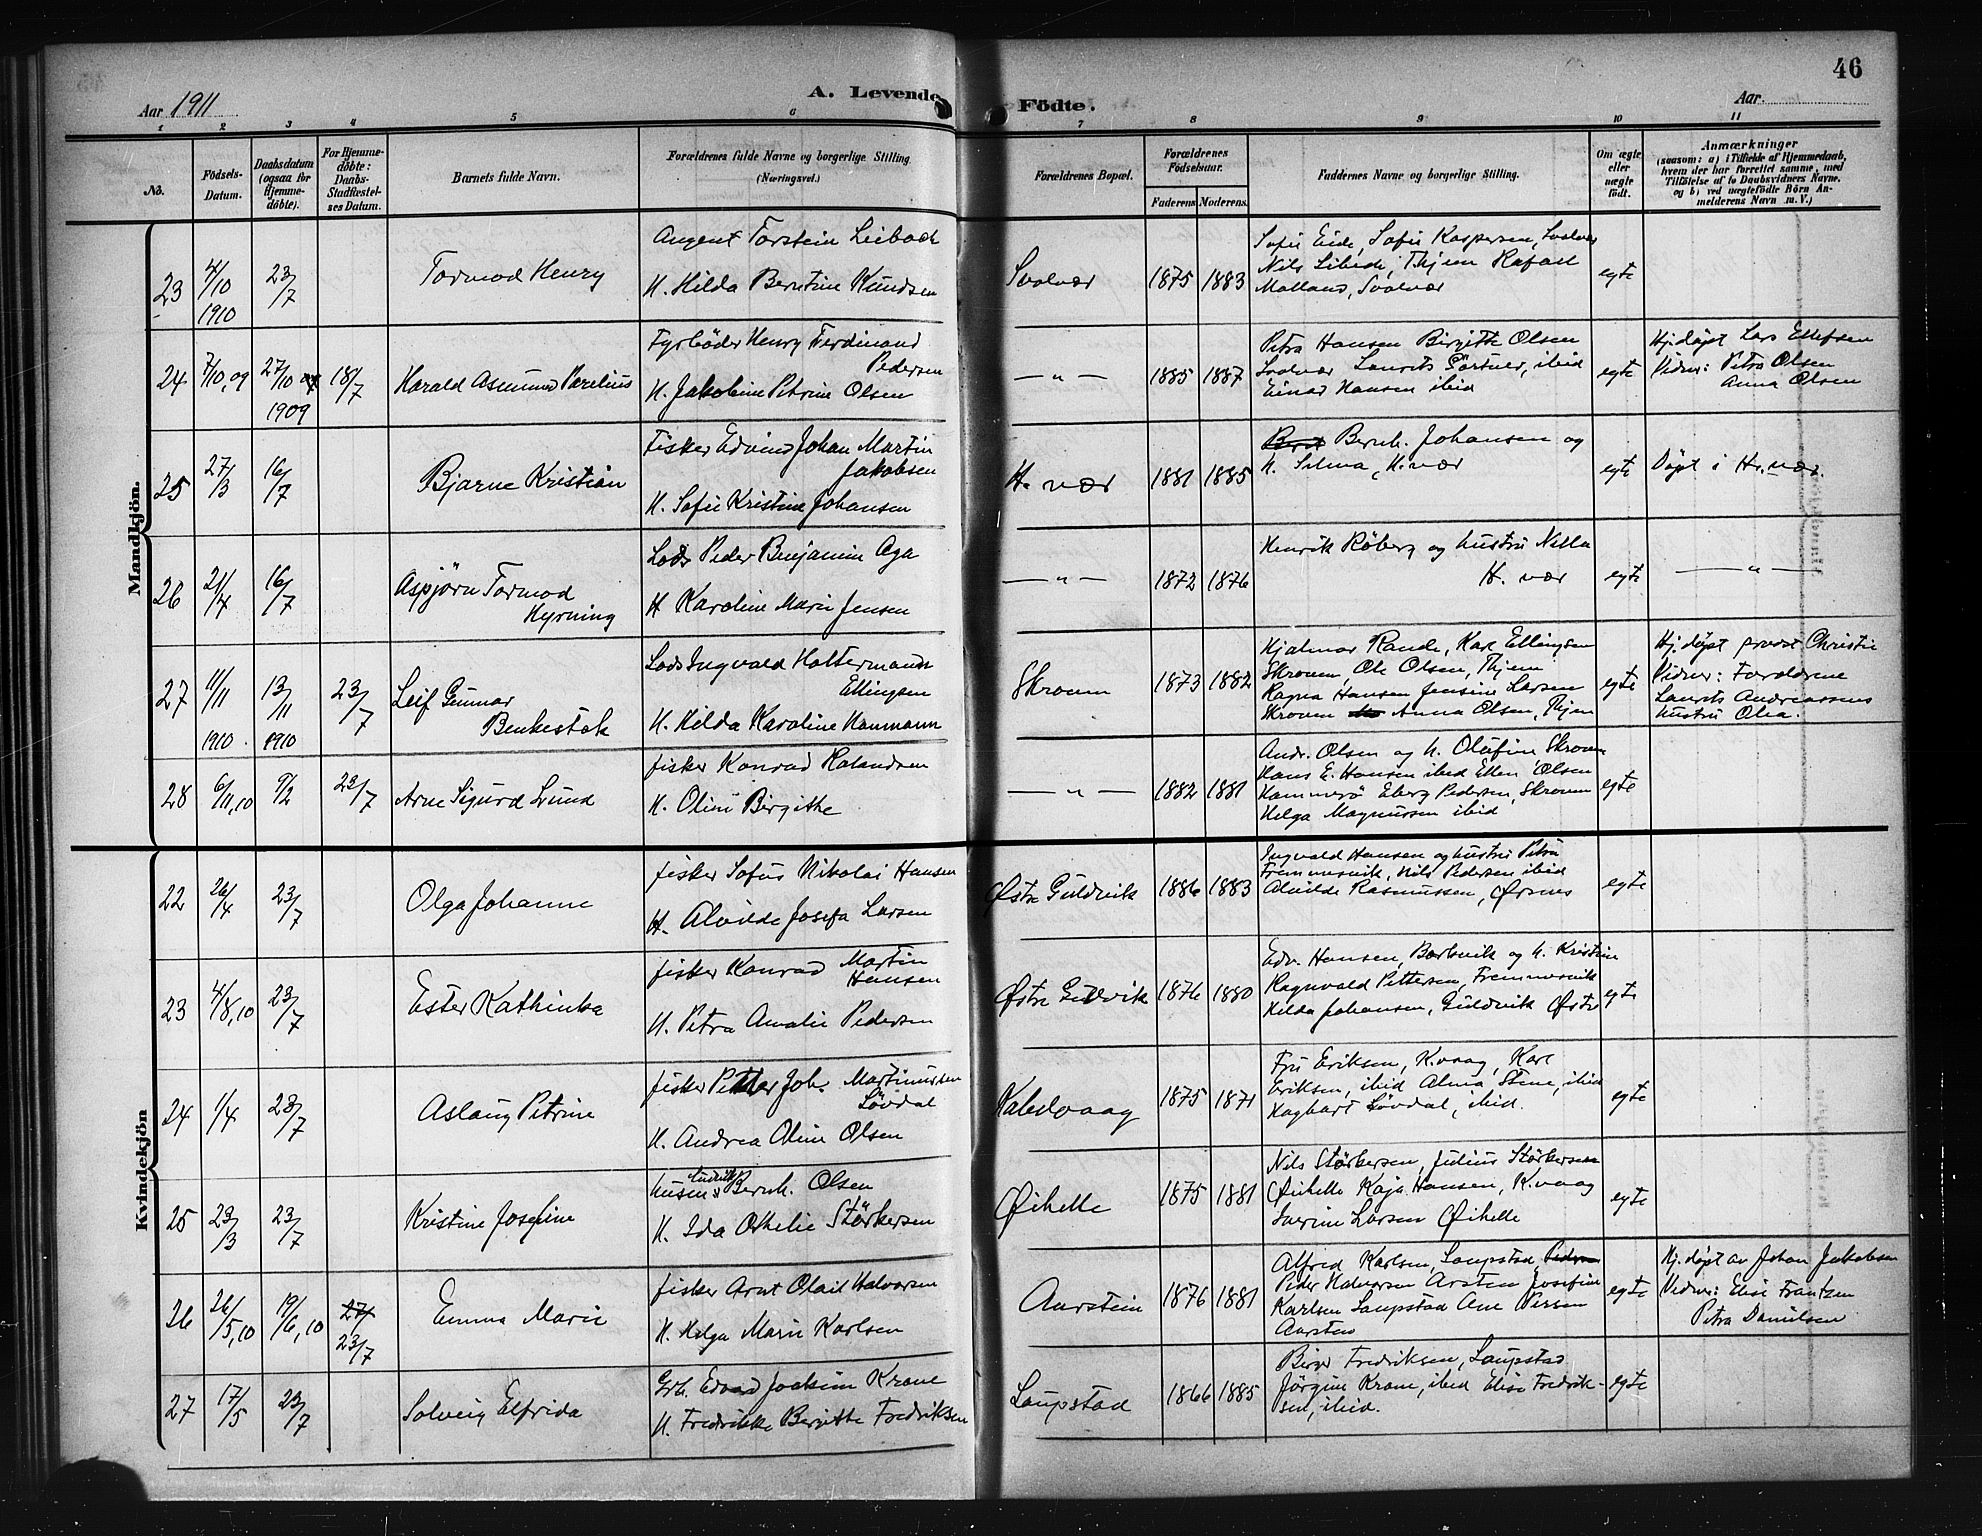 46
Aar 1911
A. Levende Födte.
Aar
1 2 3 4 5 6 7 8 9 10 11
No.
Födsels-Datum.
Daabsdatum (ogsaa for Hjemme-döbte).
For Hjemme-döbte: Daabs-Stadfæstel-ses Datum.
Barnets fulde Navn.
Forældrenes fulde Navne og borgerlige Stilling. (Næringsvei.)
Forældrenes Bopæl.
Forældrenes Födselsaar.
Faderens Moderens
Faddernes Navne og borgerlige Stilling.
Om ægte eller uægte födt.
Anmærkninger
(saasom: a) i Tilfælde af Hjemmedaab, hvem der har forrettet samme, med Tilföielse af to Daabsvidners Navne, og b) ved uægtefödte Börn An-melderens Navn m. V.)
Mandkjön.
23 4/10 1910 23/7 Tormod Henry
Angent Torstein Leibach
H. Hilda Berntine Kundsen
Svolvær 1875 1883
Sofie Eide, Sofie Kaspersen, Svolvær
Nils Libeide, Thjem Rafael
Molland, Svolvær
egte
24 7/10, 09 27/10 1909 18/7 Harald Asmund Parelius
Fyrböder Henry Ferdinand
Pedersen
H. Jakobine Petrine Olsen
— " — 1885 1887
Petra Hansen Birgitte Olsen
Svolvær Laurits Görtner, ibid
Einar Hansen ibid
egte
Hj.døpt Lars Ellefsen
Vidner: Petra Olsen
Anna Olsen
25 27/3 16/7 Bjarne Kristian
Fisker Edvind Johan Martin
Jakobsen
H. Sofie Kristine Johansen
H. vær 1881 1885
Bernh. Johansen og
H. Selma, H.vær
egte
Døpt i H. vær.
26 21/4 16/7 Asbjørn Tormod
Hyrning
Lods Peder Benjamin Aga
H Karoline Marie Jensen
— " — 1872 1876
Henrik Röberg og hustru Nella
H. vær
egte
— " —
27 11/11 1910 13/11 1910 23/7 Leif Gunnar
Benkestok
Lods Ingvald Haltermann
Ellingsen
H. Hilda Karoline Hanmann
Skroven 1873 1882
Hjalmar Rande, Karl Ellingsen
Skroven, Ole Olsen, Thjem
Ragna Hansen Jensine Larsen
Skroven Anna Olsen, Thjem
egte
Hj. døpt provst Christie
Vidner: Forældrene
Laurits Andreassens
hustru Olea.
28 6/11, 10 9/2 23/7 Arne Sigurd Lund
fisker Konrad Rolandsen
H. Oline Birgitte
— " — 1882 1881
Andr. Olsen og H. Olufine Skroven
Hans E. Hansen ibid Ellen Olsen
Hammerö Eberg Pedersen, Skroven
Helga Magnussen ibid
egte
Kvindekjön
22 26/4 23/7 Olga Johanne
fisker Sofus Nikolai Hansen
H. Alvilde Josefa Larsen
Østre Guldvik 1886 1883
Ingvald Hansen og hustru Petra
Fremmesvik, Nils Pedersen ibid
Alvilde Rasmussen, Ørsnes
egte
23 4/8, 10 23/7 Ester Kathinka
fisker Konrad Martin
Hansen
H. Petra Amalie Pedersen
Østre Guldvik 1876 1880
Edv. Hansen, Borkvik og H. Kristine
Ragnvald Pettersen, Fremmesvik
Hilda Johansen, Guldvik Østre
egte
24 1/4 23/7 Aslaug Petrine
fisker Petter Joh. Martinussen
Lövdal
H. Andrea Oline Olsen
Kaledvaag 1875 1871
Eriksen, K.vaag, Karl
Eriksen, ibid Alma Stene, ibid
Hagbart Lövdal, ibid.
egte
25 23/3 23/7 Kristine Josefine
husm. Ludvik Bernh. Olsen
H. Ida Othelie Störkersen
Øihelle 1875 1881
Nils Störkersen, Julius Störkersen
Øihelle Kaja Hansen, K.vaag
Severine Larsen Øihelle
egte
26 26/5, 10 19/6, 10 27/ 23/7 Emma Marie
fisker Arnt Olait Halvorsen
H. Helga Marie Karlsen
Aarstein 1876 1881
Alfred Karlsen, Laupstad, Peder
Peder Halvorsen Arsten Josefine
Karlsen Laupstad Ane Persen
Aarsten
egte
Hj. døpt av Johan Jakobsen
Vidner: Elise Frantzen
Petra Danielsen
27 17/5 23/7 Solveig Elfrida
Grb. Edvard Joakim Krane
H. Fredrikke Bergitte Fredriksen
Laupstad 1866 1885
Birger Fredriksen, Laupstad
Jörgine Krane, ibid Elise Fredrik-
sen, ibid.
egte